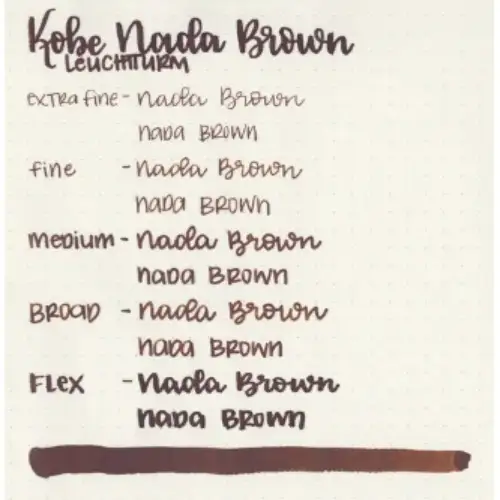 Kobe Nada Brown
LEUCHTTURM
extra fine - Nada Brown
NADA BROWN
fine - Nada Brown
NADA BROWN
medium - Nada Brown
NADA BROWN
BROAD - Nada Brown
NADA BROWN
FLEX - Nada Brown
NADA BROWN